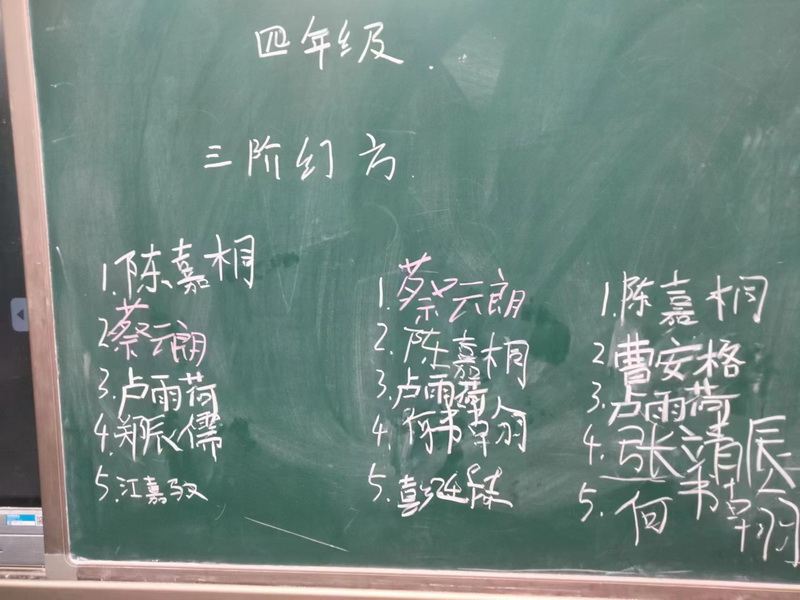 四年级.
三阶幻方.
1.陈嘉桐
2蔡云朗
3.卢雨荷
4.郑辰儒
5.江嘉驭
1.蔡云朗
2.陈嘉桐
3.卢雨荷
4.何韦卓羽
5.
1.陈嘉桐
2曹安格
3.卢雨荷
4.张靖辰
5.何韦卓羽